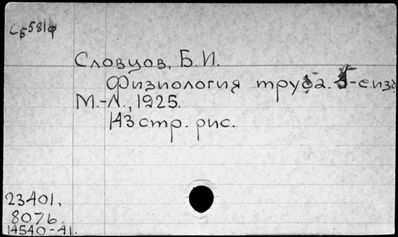 С5581ф
Словцов, Б.И.
Физиология труда. 5-е изд
М.-Л., 1925.
143 стр. рис.
23401,
8076.
14540-41.